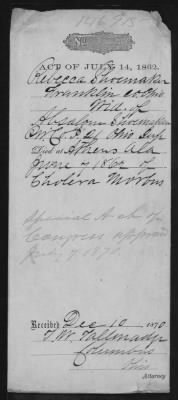 ACT OF JULY 14, 1862.
Rebecca Shoemaker
Franklin Co Ohio
Wid. of
Absalom Shoemaker
Ohio
Died at Athens Ala
June 7 1862 of
Cholera Morbus
Special Act of
Congress approved
July 7 1870
Received Dec 10 1870
T. W. Tallmadge
Columbus
Ohio
Attorney